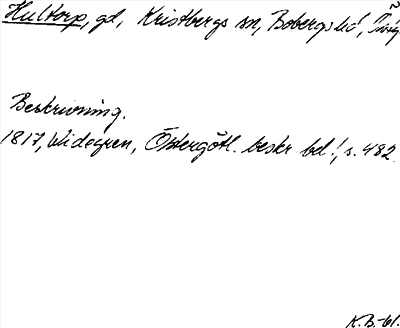 Hultorp, gd, Kristbergs sn, Bobergs hd,
Beskrivning.
1817, Widegren, Östergötl. beskr bd 1, s. 482.
K.B.-61.